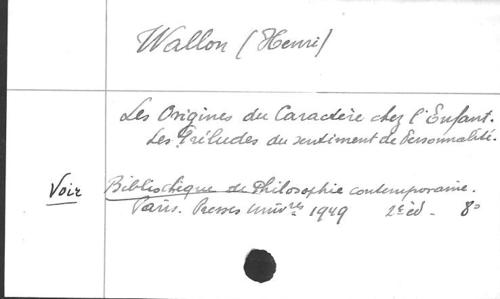 Wallon (Henri)
Les Origines du Caractère chez l'Enfant.
Les Préludes du sentiment de Personnalité.
Voir Bibliothèque de Philosophie contemporaine.
Paris. Presses univ.res 1949 2e éd. 8°